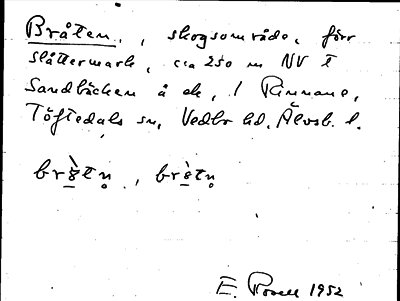 Bråten, skogsområde, förr
slåttermark, ca 250 m NV t
Sandbäcken å ek, 1 Rinnane,
Töftedals sn, Vedbo hd, Älvsb. l.
E. 1952